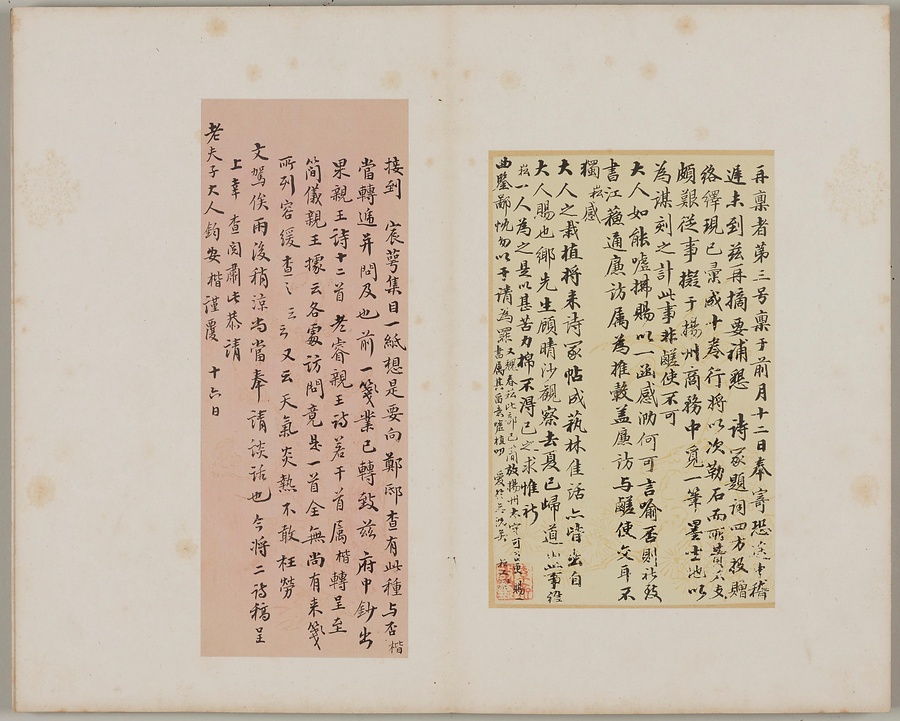 再稟者第三号稟于前月十二日奉寄恐
遲未到茲再摘要補懇　詩冢題詞四方投贈
絡繹現已彙成十卷行將以次勒石而所費不支
頗艱從事擬于揚州商務中覓一筆墨生地以
為謀刻之計此事非鹺使不可
大人如能噓拂賜以一函感泐何可言喻否則祈致
書江蘇通廉訪屬為推轂蓋廉訪與鹺使交耳不
獨崧感
大人之栽植將来詩冢帖成藝林佳話亦皆出自
大人賜也鄉先生顧晴沙觀察去夏已歸道山此事從
崧一人為之是以甚苦力綿不得已之求惟祈
曲鑒鄙忱勿以干請為罪
接到　宸萼集目一紙想是要向鄭邸查有此種与否楷
當轉遞并問及也前一箋業已轉致茲府中鈔出
果親王詩十二首老睿親王詩若干首屬楷轉呈至
簡儀親王據云各處访問竟是一首全無尚有来箋
所列容緩查之云云又云天氣炎熱不敢枉勞
文駕俟雨後稍涼尚當奉請談話也今將二诗稿呈
上幸查閱肅此恭請
老夫子大人鈞安楷謹覆　十六日